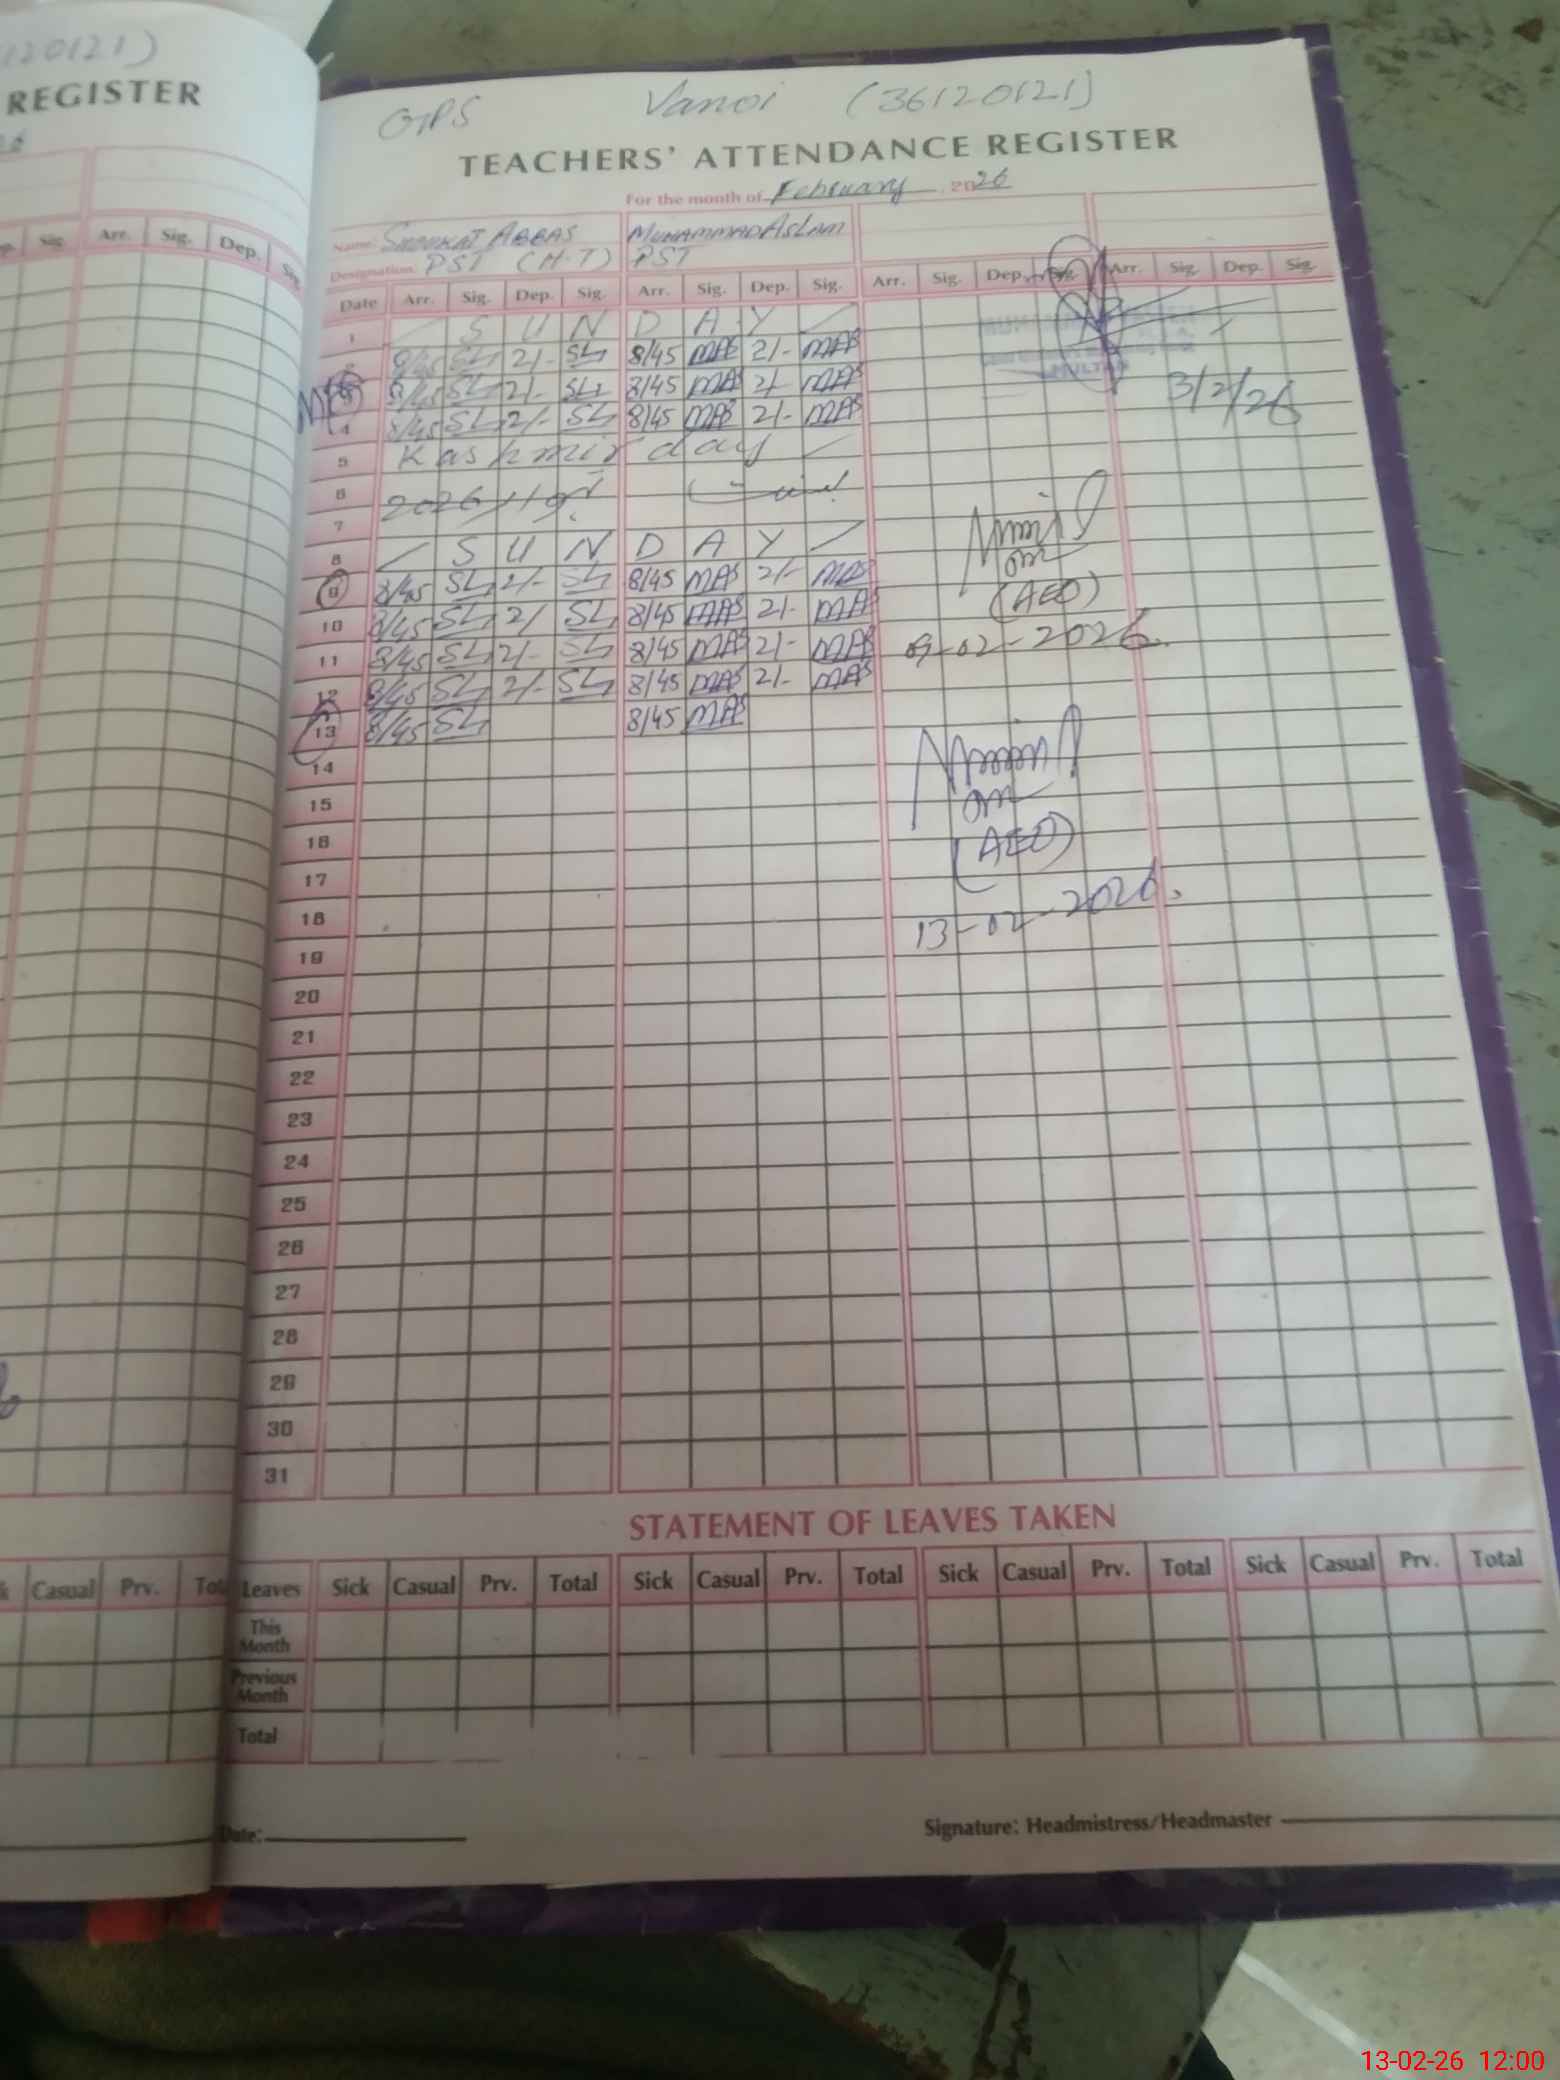 120121)
REGISTER
Sig. Arr. Sig. Dep. Sig.
GPS Vanoi (36120121)
TEACHERS' ATTENDANCE REGISTER
For the month of February 2026
Name: Shoukat Abbas Muhammad Aslam
Designation PST (H.T) PST
Date Arr. Sig. Dep. Sig. Arr. Sig. Dep. Sig. Arr. Sig. Dep. Sig. Arr. Sig. Dep. Sig.
1 S U N D A Y
2 8/45 SL 2/- SL 8/45 MAS 2/- MAS
MULTAN
8/45 SL 2/- SL 8/45 MAS 2/- MAS 3/2/26
4 8/45 SL 2/- SL 8/45 MAS 2/- MAS
5 Kashmir day
6 2026
7
8 S U N D A Y
9 8/45 SL 2/- SL 8/45 MAS 2/- MAS (AEO)
10 8/45 SL 2/ SL 8/45 MAS 2/- MAS
11 8/45 SL 2/- SL 8/45 MAS 2/- MAS 09-02-2026.
12 8/45 SL 2/- SL 8/45 MAS 2/- MAS
13 8/45 SL 8/45 MAS
14
15
16
(AEO)
17
18 13-02-2026.
19
20
21
22
23
24
25
26
27
28
29
30
31
STATEMENT OF LEAVES TAKEN
Casual Prv. Leaves Sick Casual Prv. Total Sick Casual Prv. Total Sick Casual Prv. Total Sick Casual Prv. Total
This Month
Previous Month
Total
Date:
Signature: Headmistress/Headmaster
13-02-26 12:00